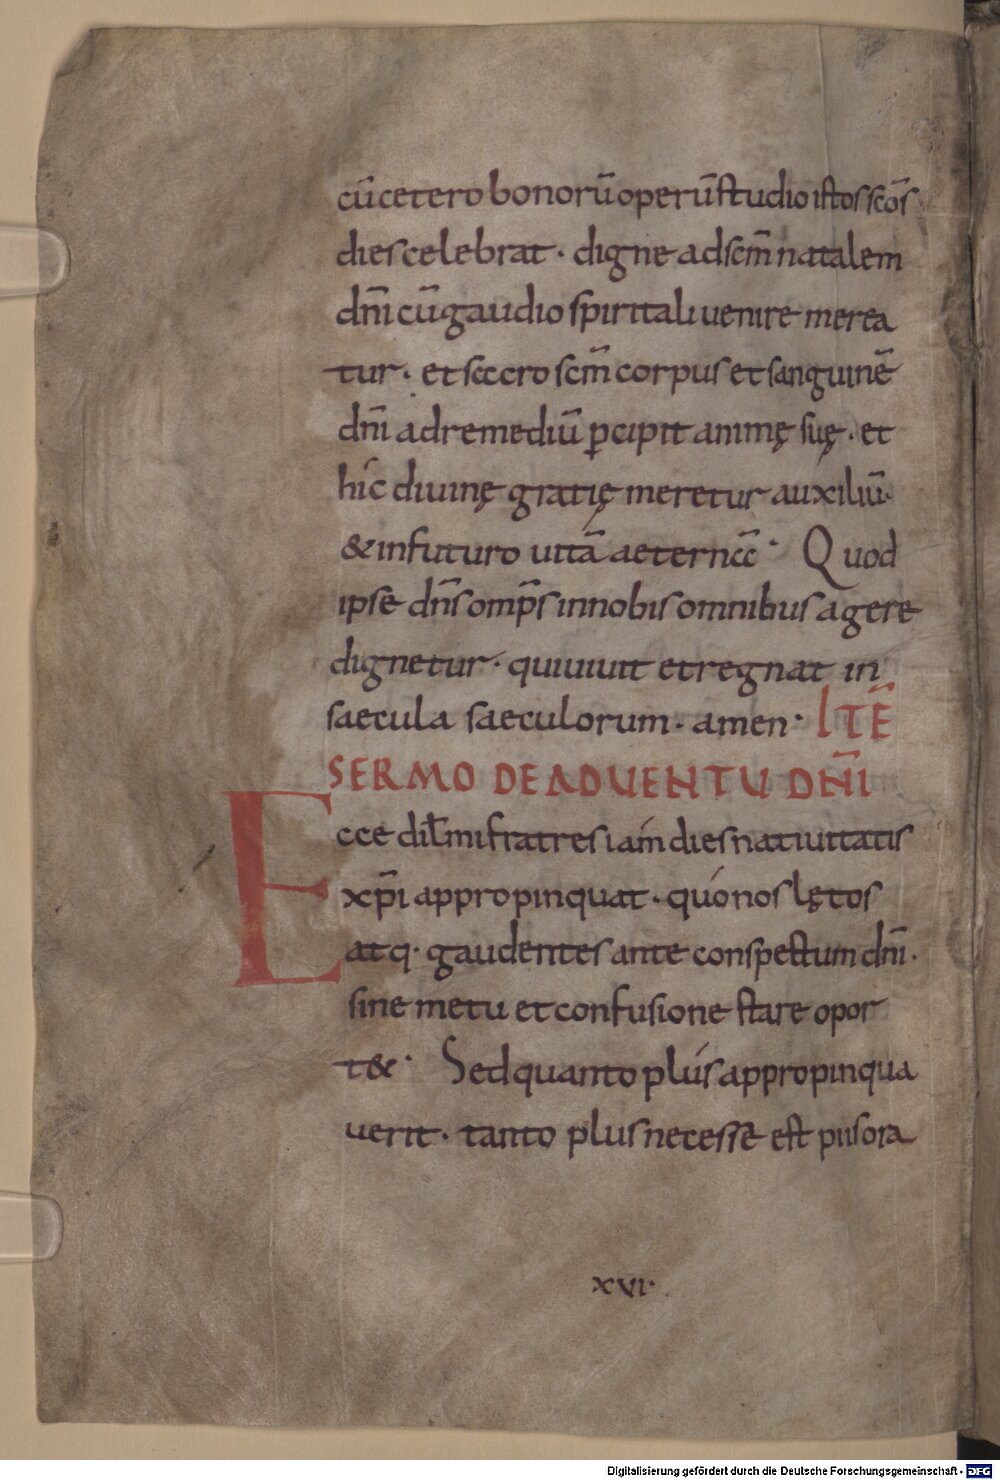 cū cetero bonorū operū studio istos scōs
dies celebrat · digne ad scm̄ natalem
dn̄i cū gaudio spiritali uenire merea
tur · et sacro scm̄ corpus et sanguinē
dn̄i ad remediū ꝑcipit animę suę · et
hic diuinę gratię meretur auxiliū ·
& in futuro uitā aeternā · Quod
ipse dn̄s omp̄s in nobis omnibus agere
dignetur · qui uiuit et regnat in
saecula saeculorum · amen · ITĒ
SERMO DE ADUENTU DN̄I
Ecce dil̄mi fratres iam dies natiuitatis
xp̄i appropinquat · quo nos lętos
atq· gaudentes ante conspectum dn̄i ·
sine metu et confusione stare opor
t& · Sed quanto plus appropinqua
uerit · tanto plus necesse est pus ora
xvi·
Digitalisierung gefördert durch die Deutsche Forschungsgemeinschaft - DFG